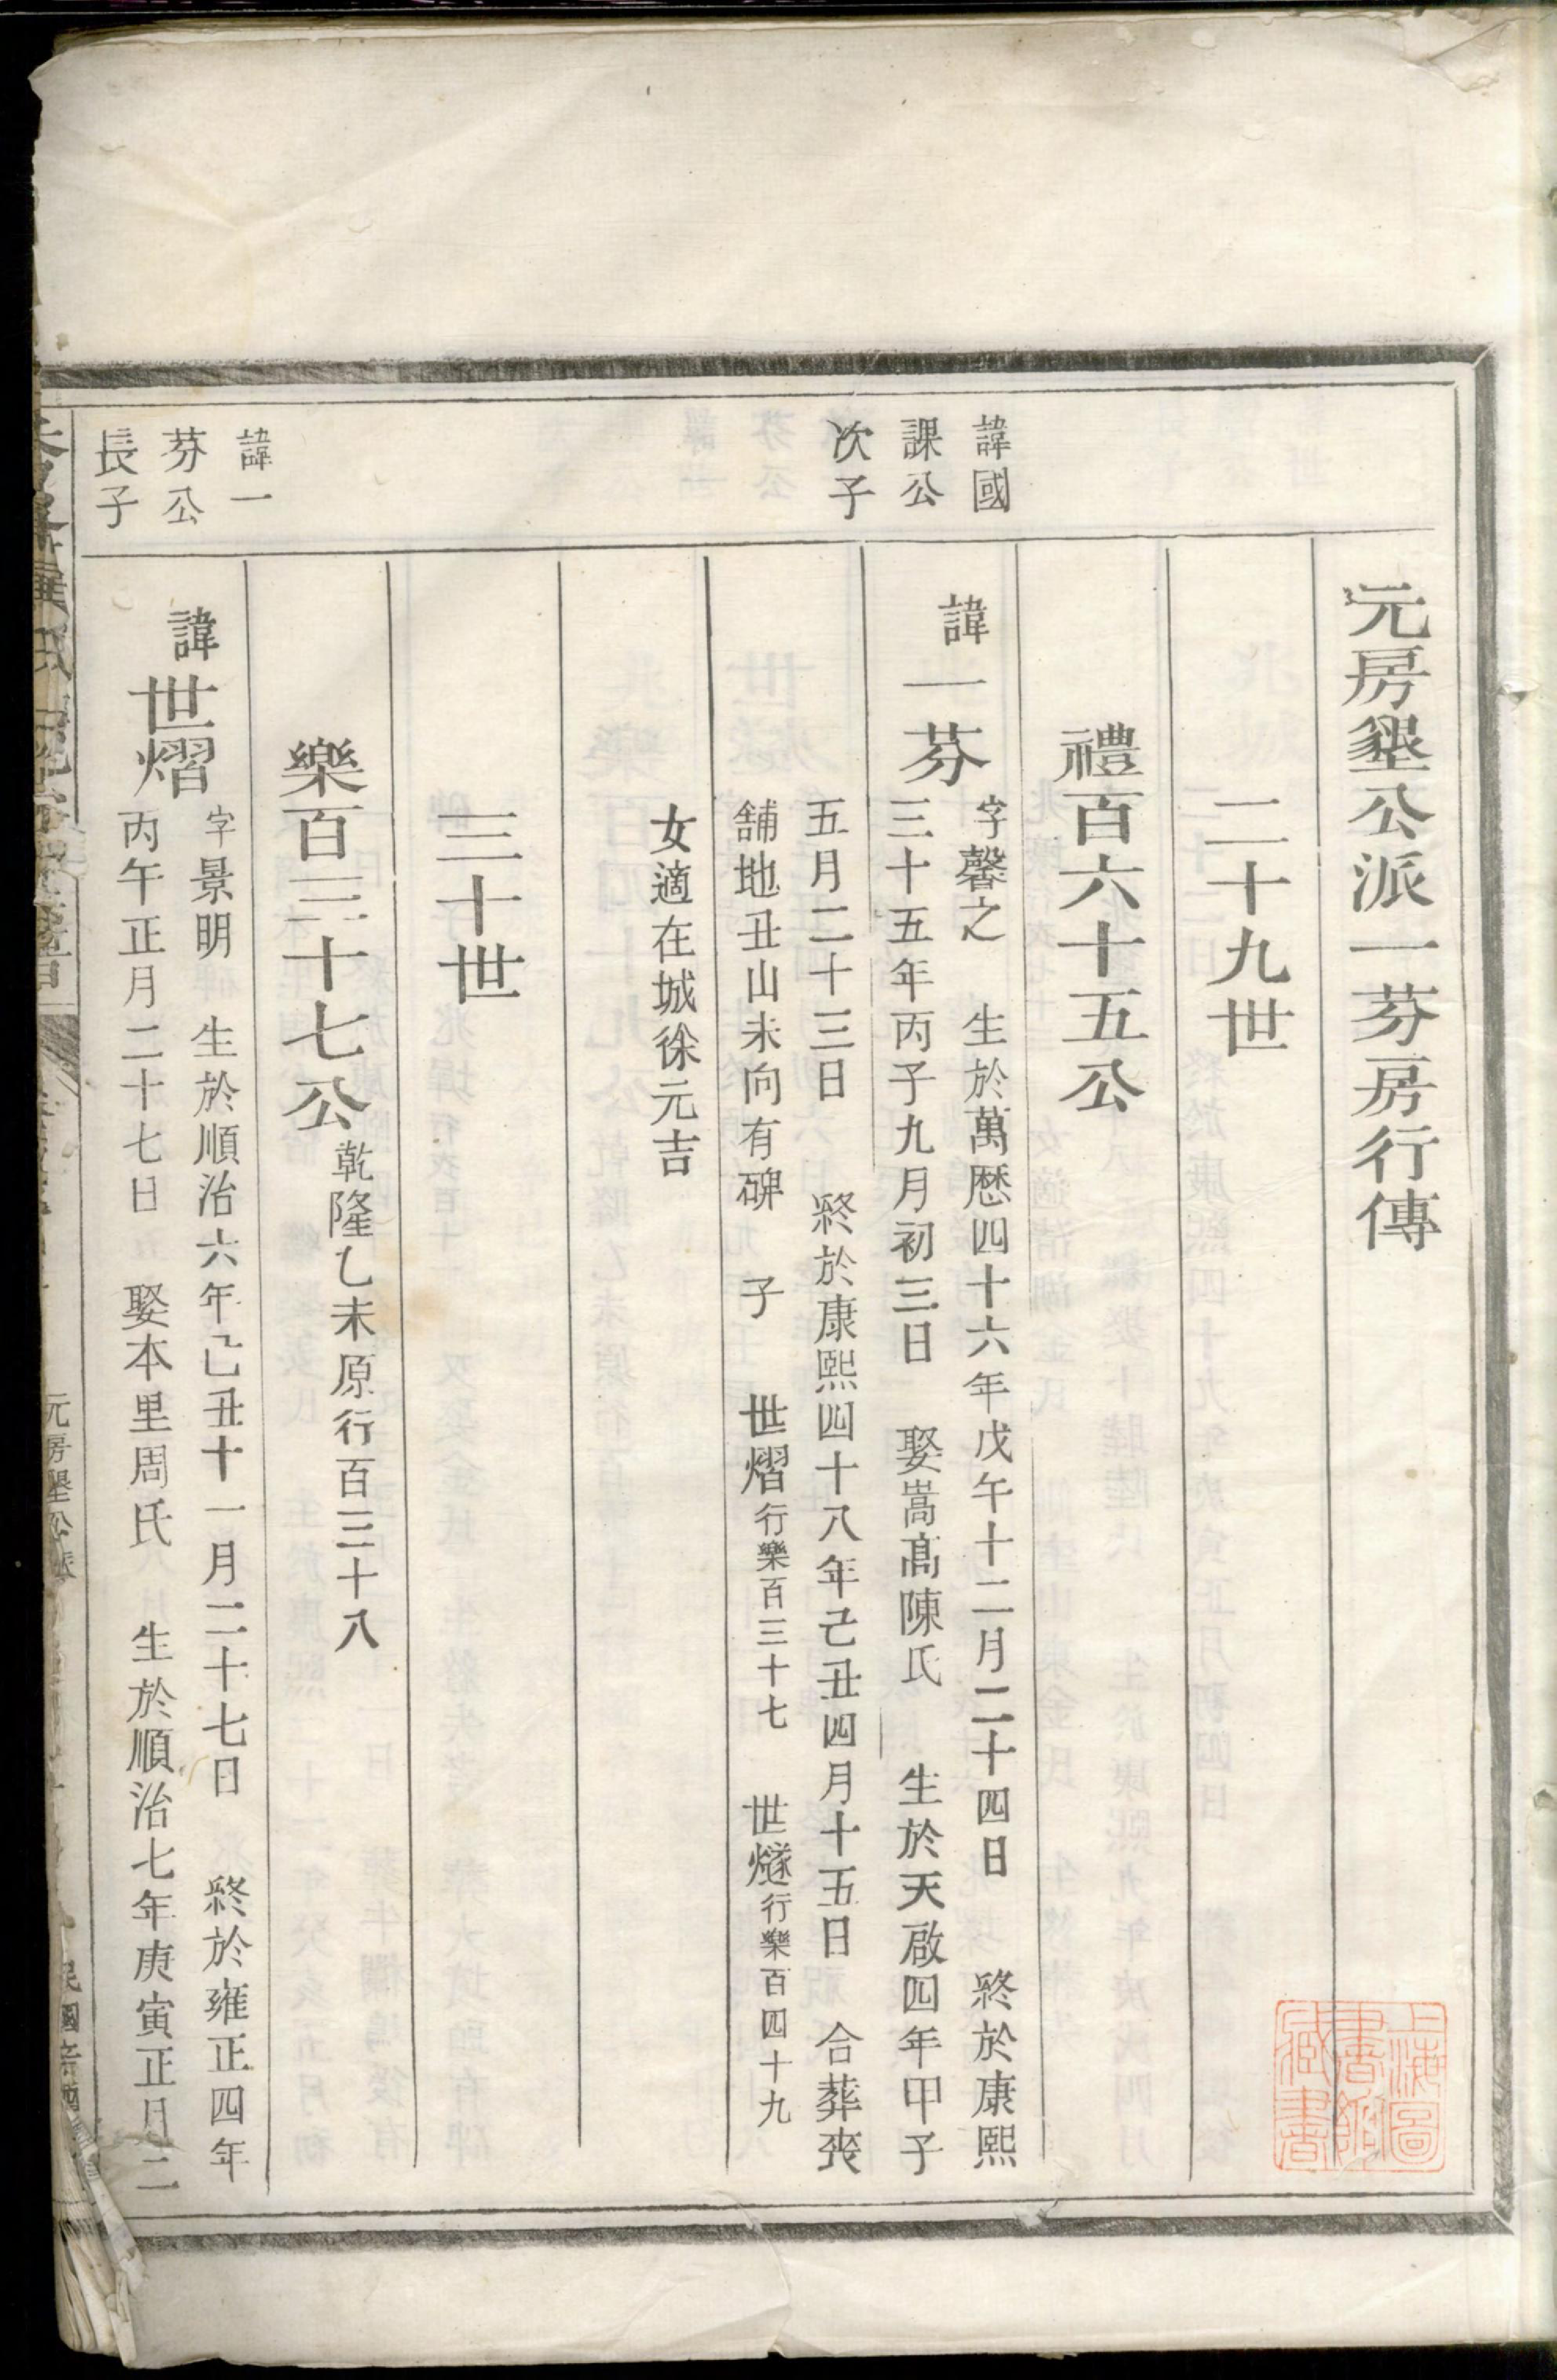 元房墾公派一芬房行傳
二十九世
禮百六十五公
諱國
課公
次子
諱一芬
字馨之　生於萬歴四十六年戊午十二月二十四日　終於康熙
三十五年丙子九月初三日　娶嵩髙陳氏　生於天啟四年甲子
五月二十三日　終於康熙四十八年己丑四月十五日　合葬喪
舖地丑山未向有碑　子　世熠行樂百三十七　世燧行樂百四十九
女適在城徐元吉
三十世
樂百三十七公乾隆乙未原行百三十八
諱一
芬公
長子
諱世熠
字景明　生於順治六年己丑十一月二十七日　終於雍正四年
丙午正月二十七日　娶本里周氏　生於順治七年庚寅正月二
元房墾公派
民國
上海圖
書館
藏書